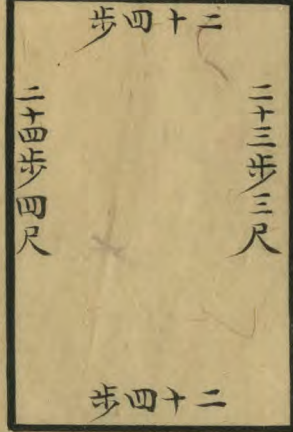 二十四步
二十三步三尺
二十四步四尺
二十四步